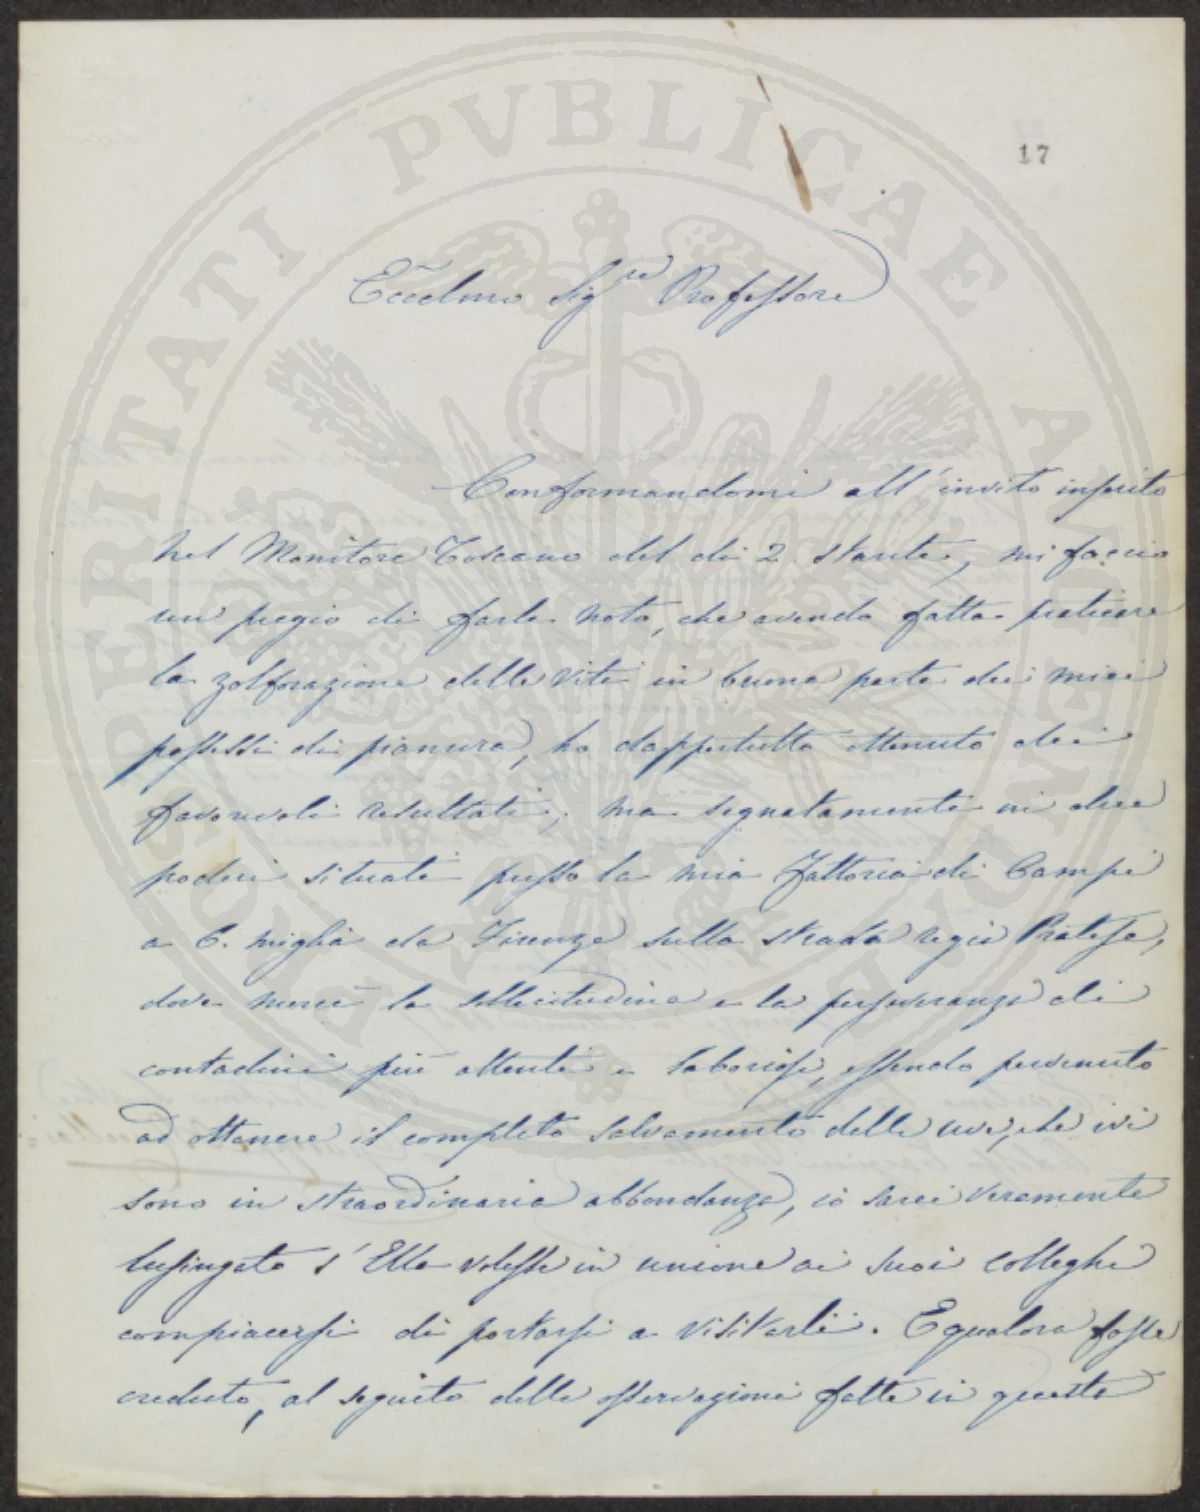 17
Eccelmo Sigre Professore
Conformandomi all'invito inserito
nel Monitore Toscano del dì 2 stante, mi faccio
un pregio di farle noto, che avendo fatta praticare
la zolforazione delle viti in buona parte dei miei
possessi di pianura, ho dappertutto ottenuto dei
favorevoli resultati; ma segnatamente in due
poderi situati presso la mia Fattoria di Campi
a 6. miglia da Firenze sulla strada regia Pratese,
dove mercè la sollecitudine e la perseveranza di
contadini più attenti e laboriosi, essendo pervenuto
ad ottenere il completo salvamento delle uve, che ivi
sono in straordinaria abbondanza, io sarei veramente
lusingato s'Ella volesse in unione ai suoi colleghi
compiacersi di portarsi a visitarli. E qualora fosse
creduto, al seguito delle osservazioni fatte in queste
PROSPERITATI PVBLICAE AVGENDAE